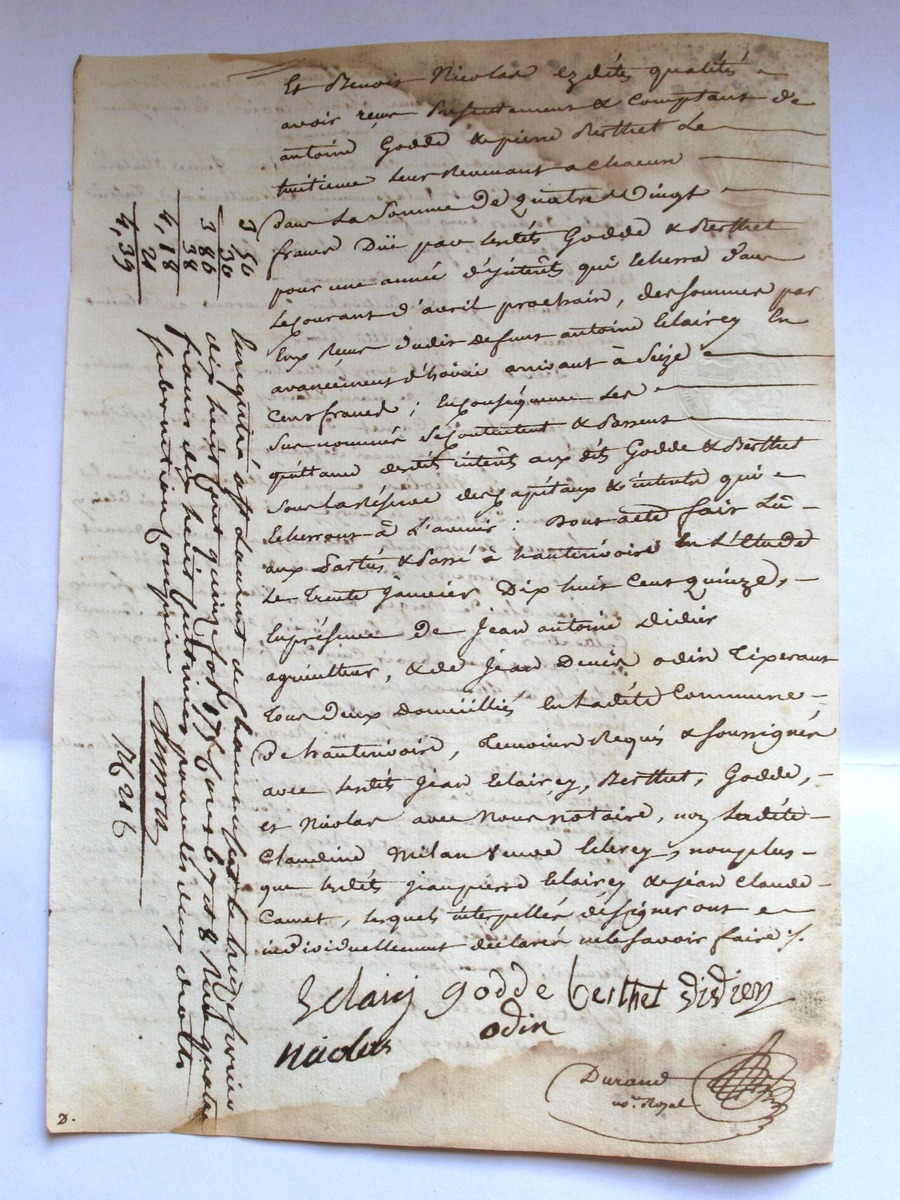 Et Benoit Nicolas ezdits qualités
avoir reçus présentement & comptant de
antoine Godde & pierre Berthet Le
huitieme leur Revenant a Chacun
Dans La Somme de quatre Vingt
francs Dûe par lesdits Godde & Berthet
pour une année d'jntérêts qui écherra dans
Le Courant d'avril prochain, des sommes par
Eux reçus dudit defunt antoine Eclairey En
avancement d'hoirie arrivant à Seize
Cent francs ; En Conséquence les
Sus nommés se Contentent & Passent
quittance desdits intérêts aux dits Godde & Berthet
sous la Réserve des Capitaux & intérêts qui
écherront à L'avenir : Dont acte fait Lû
aux Parties & Passé à hauterivoire En L'étude
Le Trente Janvier Dix huit Cent quinze,
En présence de Jean antoine Didier
agriculteur, & de Jean Denis odin Tixerant
tous deux Domiciliés En Ladite Commune
De hauterivoire, témoins Requis & soussignés
avec lesdits Jean Eclairey, Berthet, Godde,
et Nicolas avec Nous notaire, non Ladite
Claudine Milan Veuve Eclerey, non plus
que lesdits jean pierre Eclairey & Jean Claude
Camet, lesquels interpellés de signer ont
individuellement déclaré ne le savoir faire ./.
Eclairy godde berthet Didier
Nicolas odin
Durand
no.re Royal
D.
3 50
30
3 80
38
4,18
21
4,39
Enregistré à St Laurent de Chamousset le trois fevrier
dix huit cent quinze fol. 175 Cases 6 7 et 8 Reçu quatre
francs dix huit centimes pour les deux droits
subvention comprise